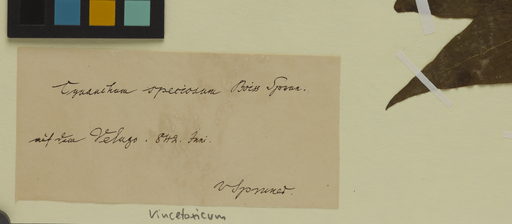 Cynanchum speciosum Boiss Sprun.
auf dem Velugo. 842. Juni.
v Spruner.
Vincetoxicum